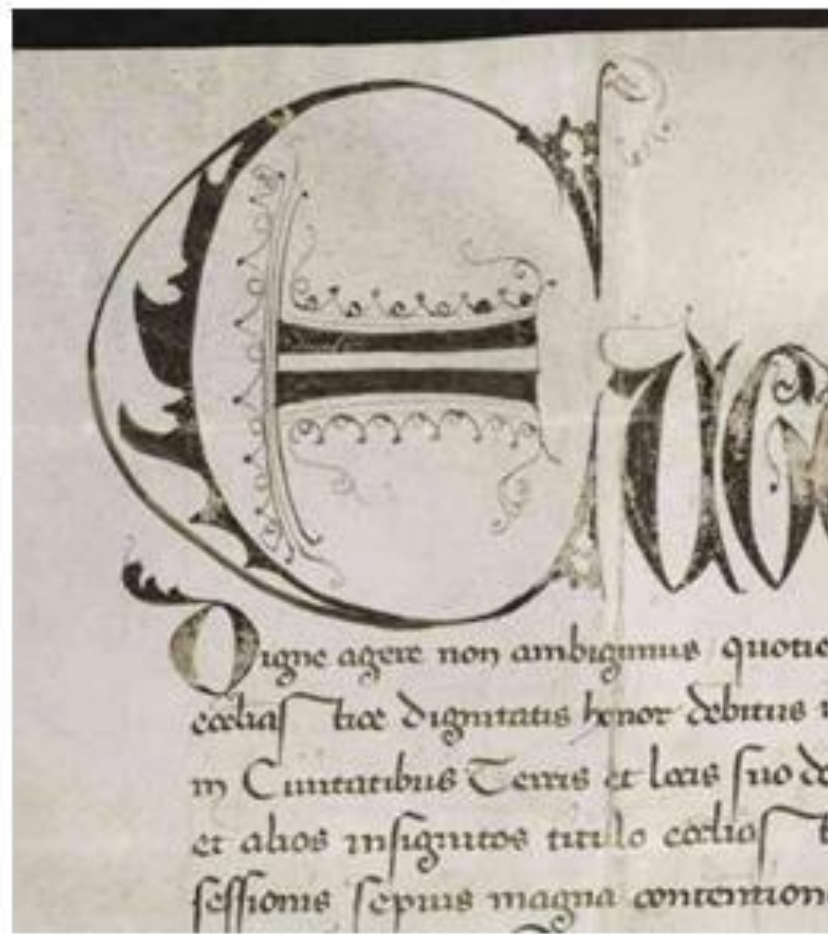 Eug
Digne agere non ambigimus quotie
eccliastice dignitatis honor debitus
in Ciuitatibus Terris et locis suo
et alios insignitos titulo ecclias t
sessionis sepius magna contention